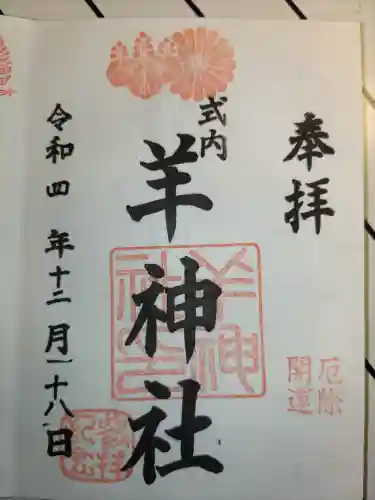 奉拝
式内
羊神社
厄除
開運
羊神社
令和四年十二月二十八日